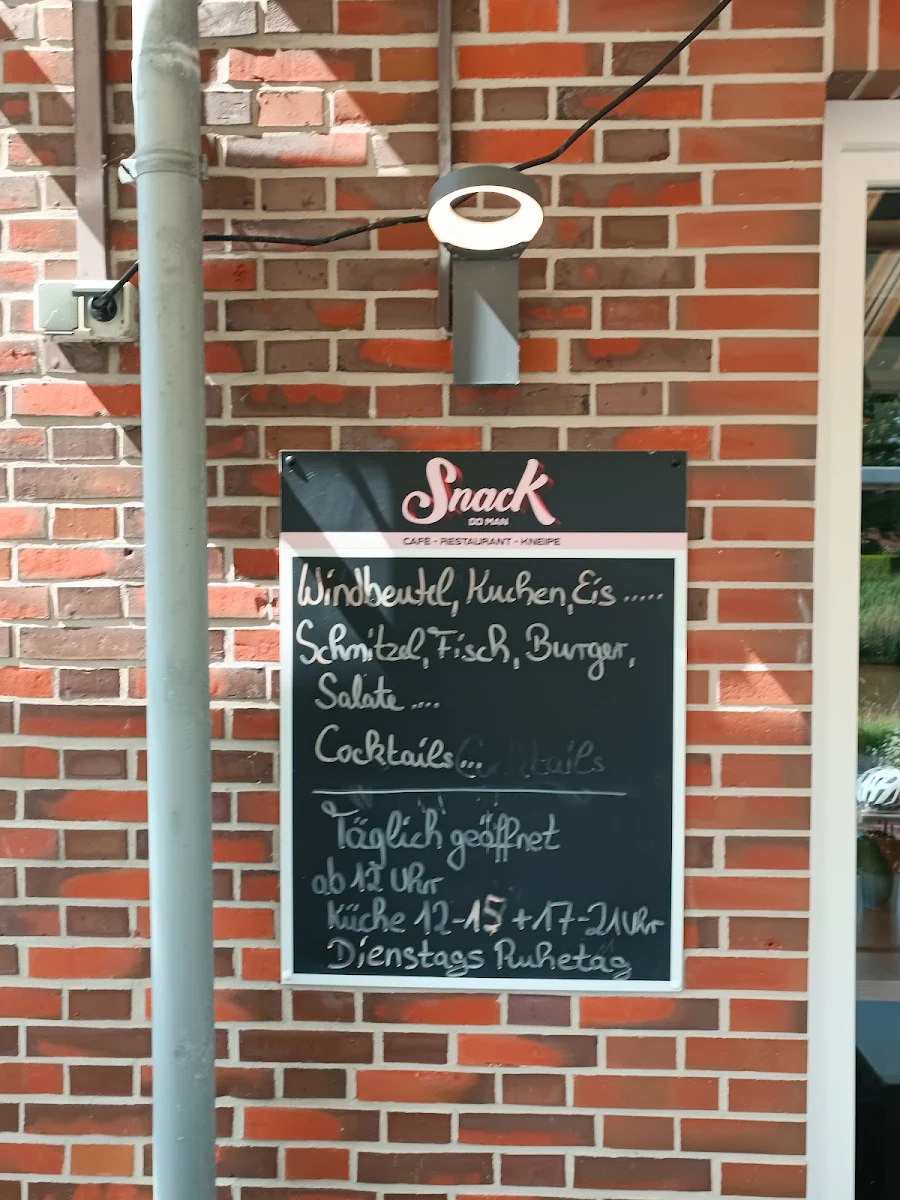 Snack
DO MAN
CAFE - RESTAURANT - KNEIPE
Windbeutel, Kuchen, Eis .....
Schnitzel, Fisch, Burger,
Salate ....
Cocktails... Cocktails
Täglich geöffnet
ab 12 Uhr
Küche 12-15 + 17-21 Uhr
Dienstags Ruhetag